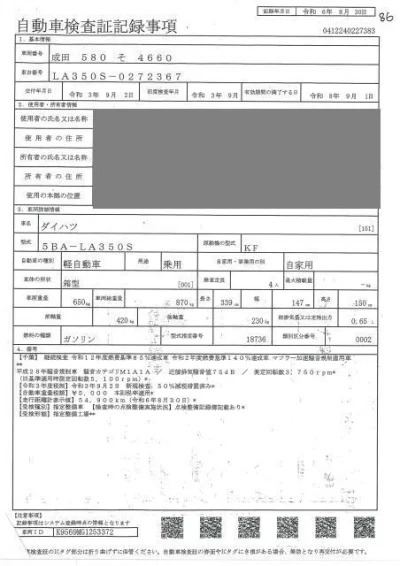 記録年月日 令和 6年 8月 30日
86
自動車検査証記録事項
0412240227383
1. 基本情報
車両番号 成田 580 そ 4660
車台番号 LA350S-0272367
交付年月日 令和 3年 9月 2日 初度検査年月 令和 3年 9月 有効期間の満了する日 令和 8年 9月 1日
2. 使用者・所有者情報
使用者の氏名又は名称
使用者の住所
所有者の氏名又は名称
所有者の住所
使用の本拠の位置
3. 車両詳細情報
車名 ダイハツ [151]
型式 5BA-LA350S 原動機の型式 KF
自動車の種別 軽自動車 用途 乗用 自家用・事業用の別 自家用
車体の形状 箱型 [001] 乗車定員 4人 最大積載量 -kg
車両重量 650kg 車両総重量 870kg 長さ 339cm 幅 147cm 高さ 150cm
前軸重 420kg 後軸重 230kg 総排気量又は定格出力 0.65L
燃料の種類 ガソリン 型式指定番号 18736 類別区分番号 0002
4. 備考
【千葉】 継続検査 令和12年度燃費基準85%達成車 令和2年度燃費基準140%達成車 マフラー加速騒音規制適用車
**
平成28年騒音規制車 騒音カテゴリM1A1A / 近接排気騒音値75dB / 測定回転数3,750rpm*
(旧基準適用時限定回転数5,100rpm)*
[令和3年度税制]令和3年9月2日 新規検査、50%減税措置済み*
[自動車重量税額]¥5,000 本則税率適用*
[走行距離計表示値]54,900km(令和6年8月30日)*
[受検種別]指定整備車 【検査時の点検整備実施状況】点検整備記録簿記載あり*
[受検形態]指定整備工場**
[注意事項]
記録事項はシステム登録時点の情報となります
車両ID K9569MG1253372
検査証のICタグ部分は折り曲げずに保管ください。自動車検査証の券面やICタグにき損がある場合、無効となり再交付が必要です。